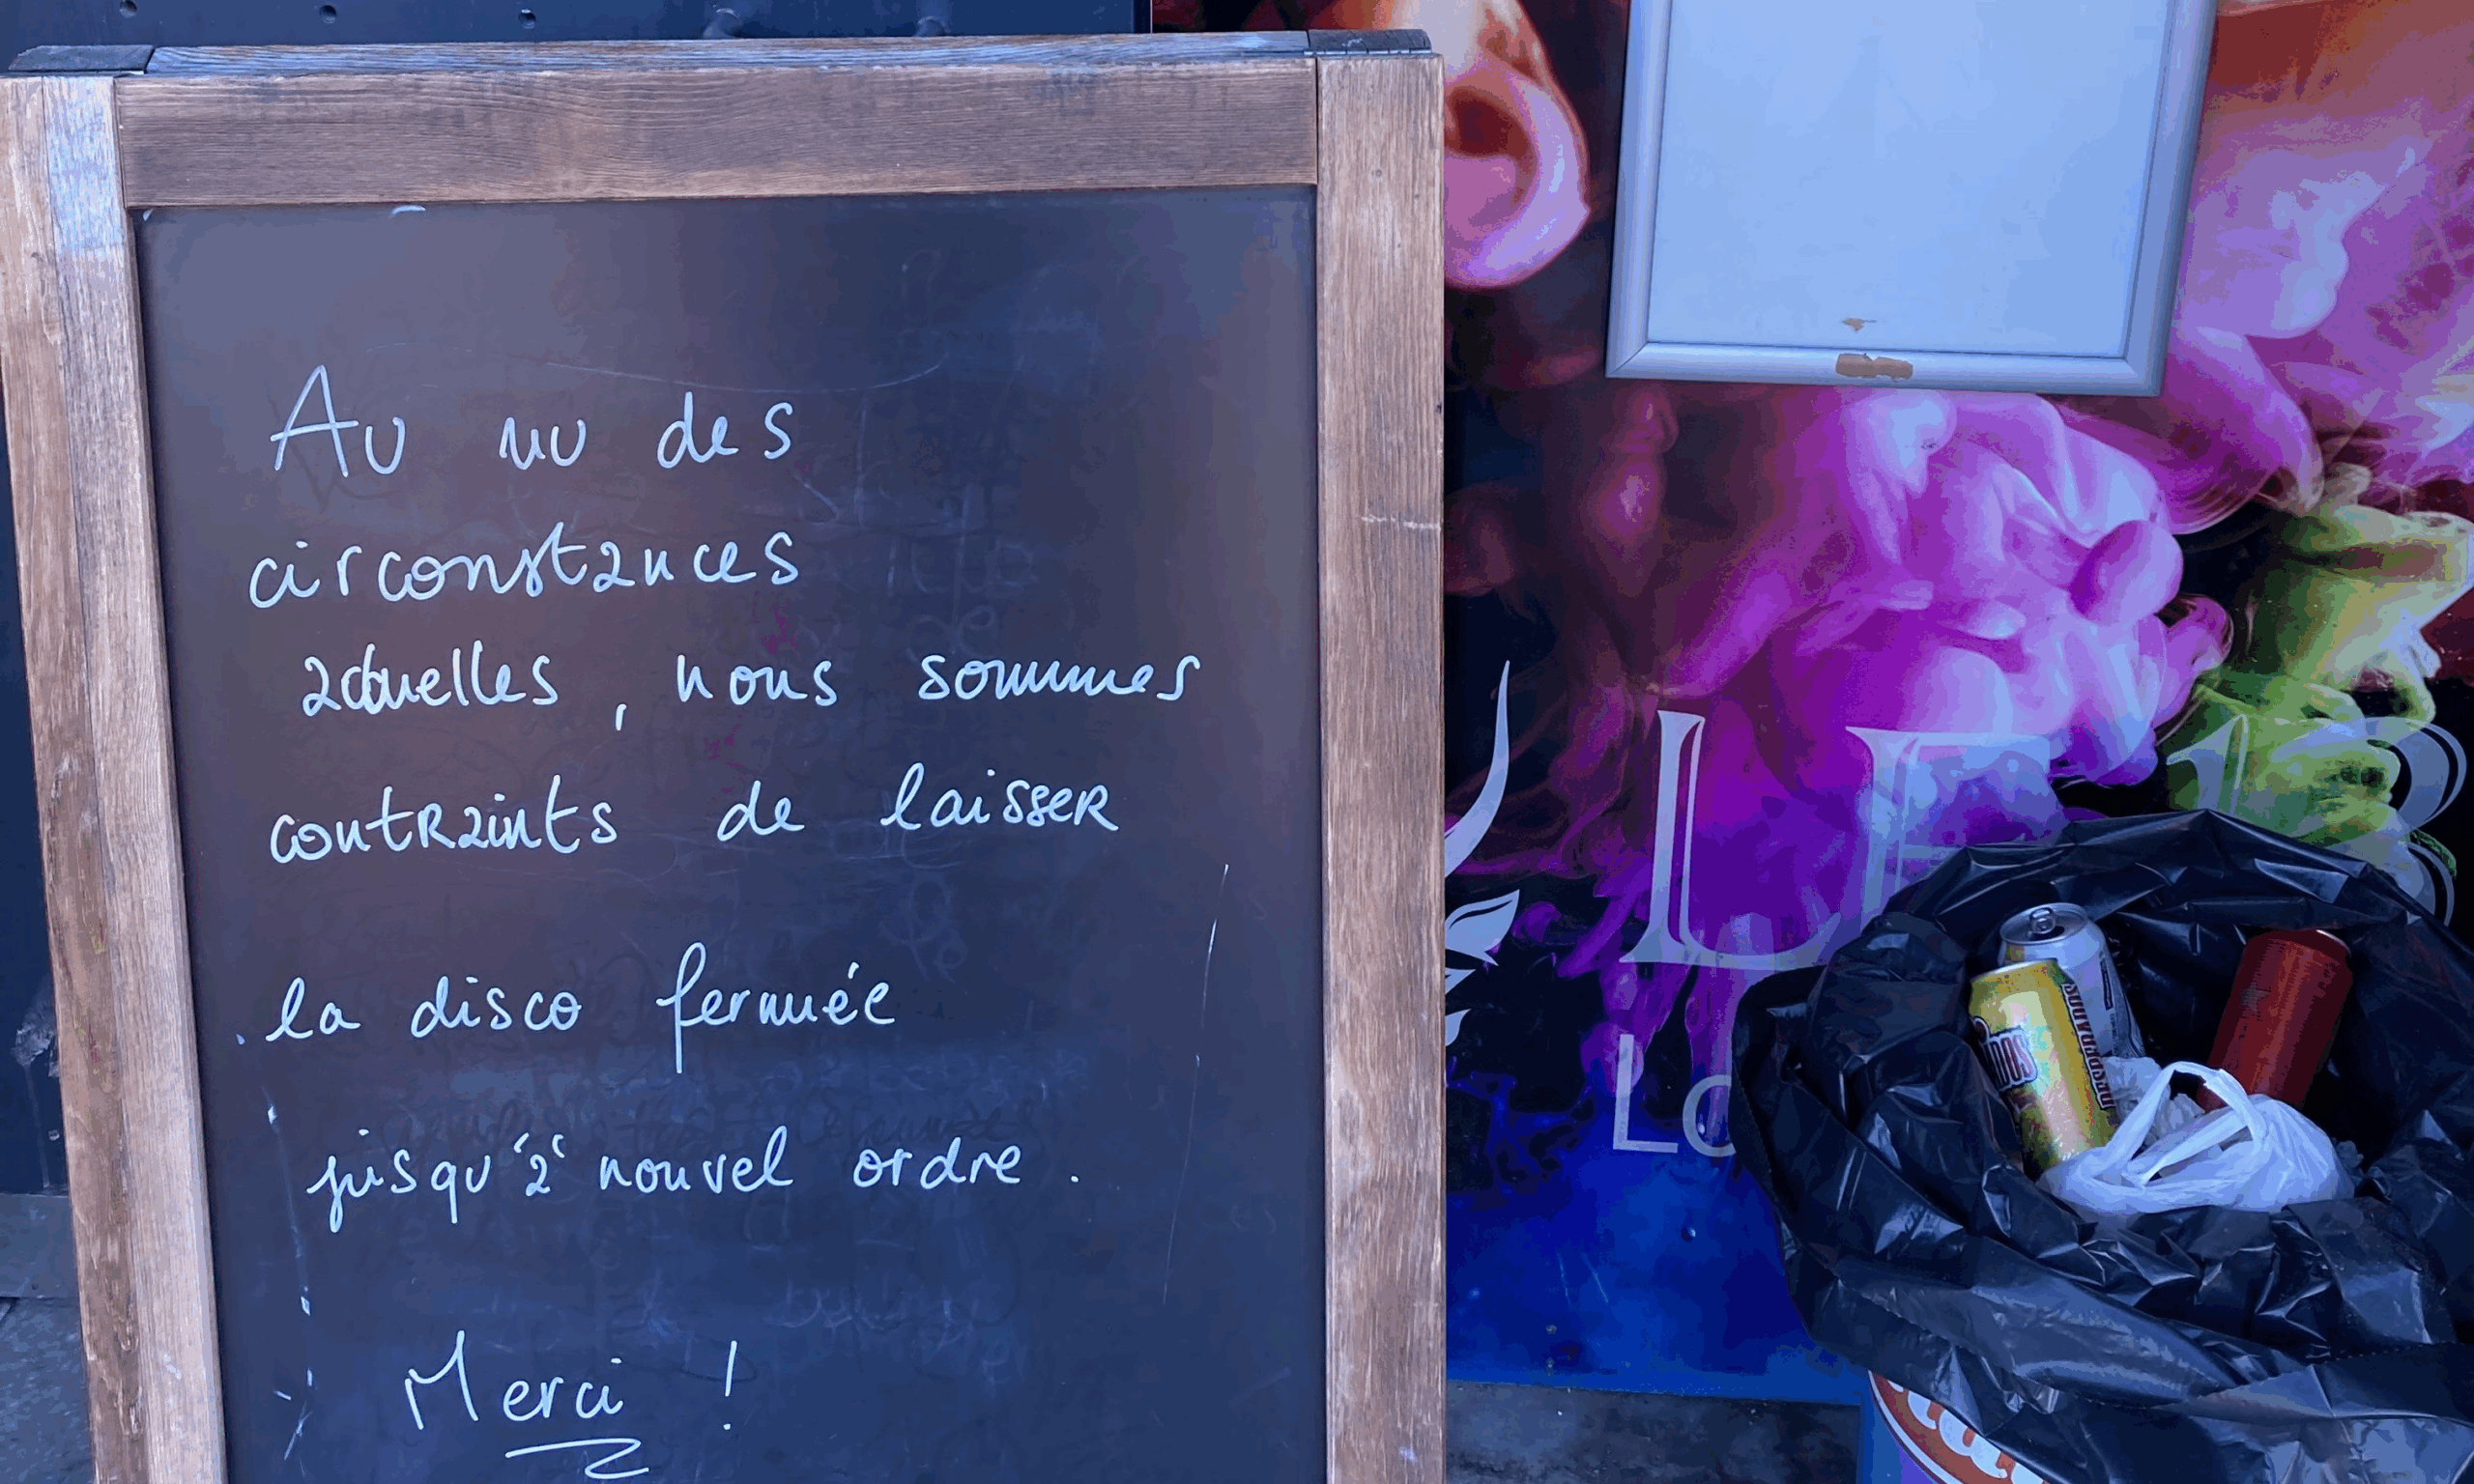 Au nu des
circonstances
actuelles, nous sommes
contraints de laisser
la disco fermée
jusqu'à nouvel ordre.
Merci !
DESPERADOS